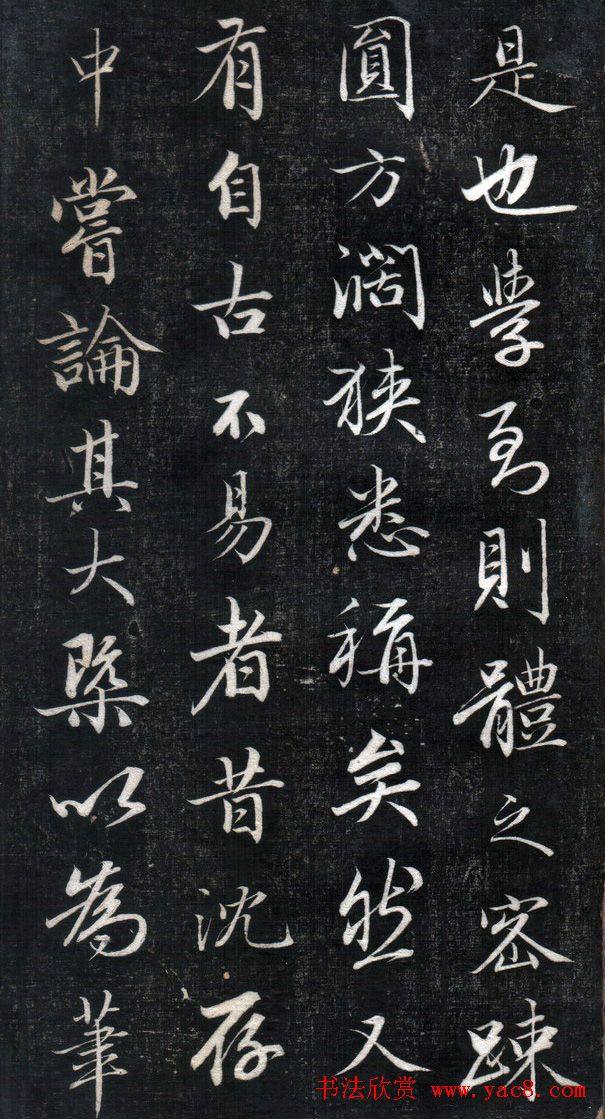 是也學至則體之密疎
圓方濶狹悉稱矣然又
有自古不易者昔沈存
中嘗論其大槩以為筆
书法欣赏 www.yac8.com